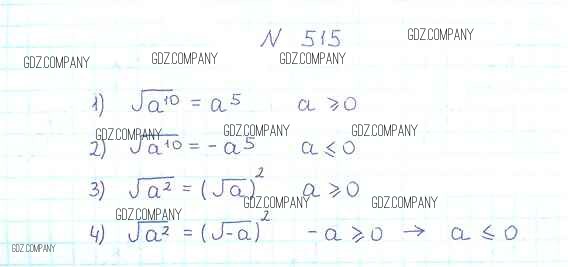 N 515
GDZ.COMPANY
GDZ.COMPANY GDZ.COMPANY GDZ.COMPANY
1) √a¹⁰ = a⁵ a ⩾ 0
GDZ.COMPANY GDZ.COMPANY GDZ.COMPANY
2) √a¹⁰ = -a⁵ a ⩽ 0
3) √a² = (√a)² a ⩾ 0
GDZ.COMPANY GDZ.COMPANY GDZ.COMPANY
4) √a² = (√-a)² -a ⩾ 0 → a ⩽ 0
GDZ.COMPANY